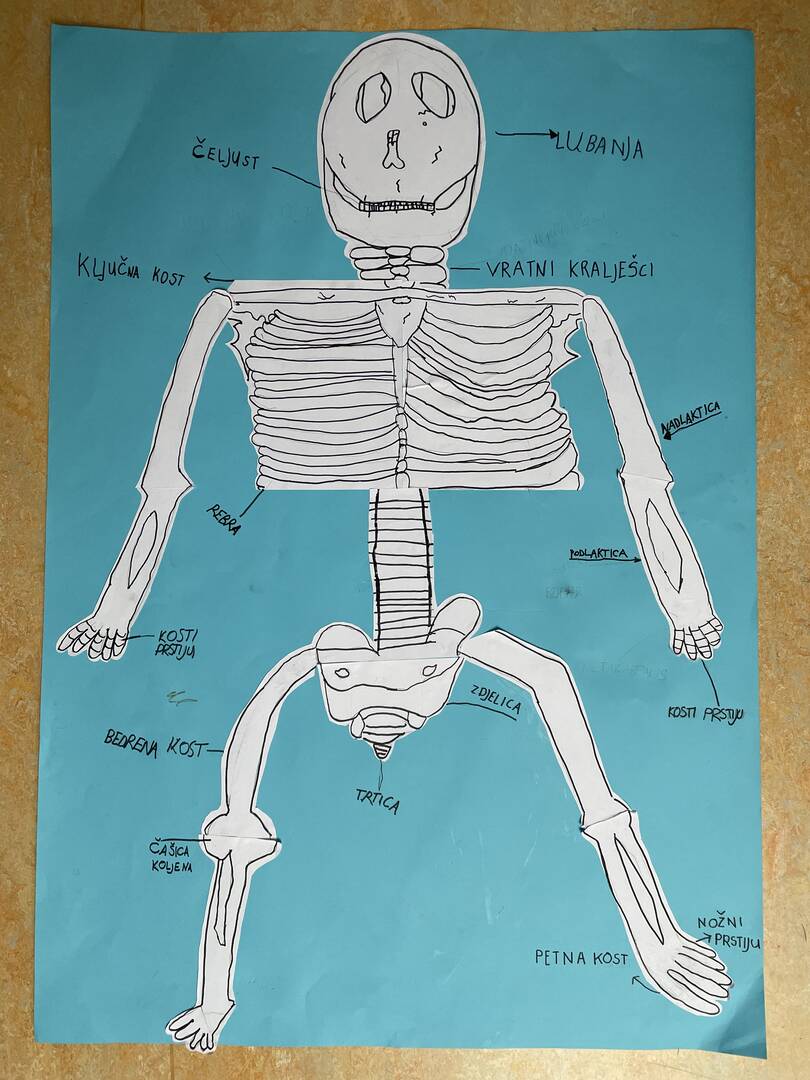 LUBANJA
ČELJUST
KLJUČNA KOST
VRATNI KRALJEŠCI
NADLAKTICA
REBRA
PODLAKTICA
KOSTI
PRSTIJU
KOSTI PRSTIJU
ZDJELICA
BEDRENA KOST
TRTICA
ČAŠICA
KOLJENA
NOŽNI
PRSTIJU
PETNA KOST